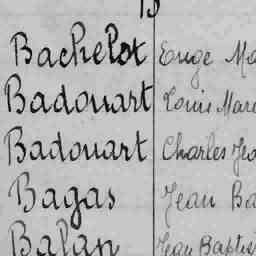 B
Bachelot Euge Ma
Badouart Louis Marc
Badouart Charles Jea
Bagas Jean Ba
Balan Jean Baptis